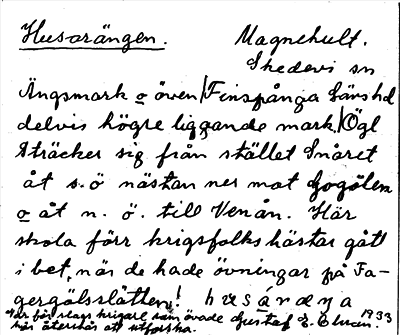 Husarängen. Magnehult.
Skedevi sn
Ängsmark o även/Finspånga länshd
delvis högre liggande mark./Ögl
sträcker sig från stället Snåret
åt s.ö nästan ner mot Gogölen
o åt n. ö. till Ven ån. Här
skola förr krigsfolks hästar gått
i bet, när de hade övningar på Fa-
gergölsslätten! husárdna
När för slags krigare som övade Gustaf E. 1933
här återstår att utforska.